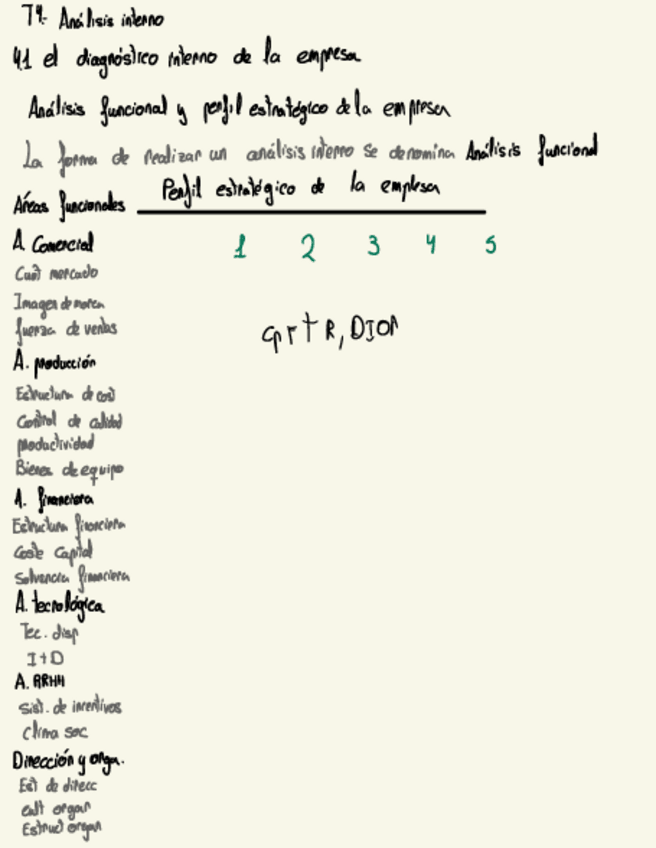 T4. Análisis interno
4.1 el diagnóstico interno de la empresa
Análisis funcional y perfil estratégico de la empresa
La forma de realizar un análisis interno se denomina Análisis funcional
Perfil estratégico de la empresa
Áreas funcionales
1 2 3 4 5
A. Comercial
Cuot mercado
Imagen de marca
fuerza de ventas
A. producción
Estructura de cost
Control de calidad
productividad
Bienes de equipo
A. financiera
Estructura financiera
Coste Capital
Solvencia financiera
A. tecnológica
Tec. disp
I+D
A. RRHH
Sist. de incentivos
Clima soc
Dirección y orga.
Est de direcc
cult organ
Estruct organ